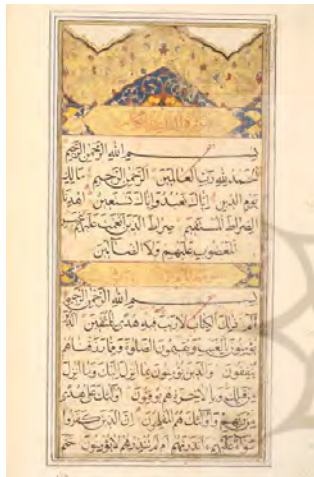 بسم الله الرحمن الرحيم
الحمد لله رب العالمين الرحمن الرحيم مالك
يوم الدين إياك نعبد وإياك نستعين اهدنا
الصراط المستقيم صراط الذين أنعمت عليهم غير
المغضوب عليهم ولا الضالين
بسم الله الرحمن الرحيم
الم ذلك الكتاب لا ريب فيه هدى للمتقين الذين
يؤمنون بالغيب ويقيمون الصلوة ومما رزقناهم
ينفقون والذين يؤمنون بما أنزل إليك وما أنزل
من قبلك وبالآخرة هم يوقنون أولئك على هدى
من ربهم وأولئك هم المفلحون إن الذين كفروا
سواء عليهم ءأنذرتهم أم لم تنذرهم لا يؤمنون ختم